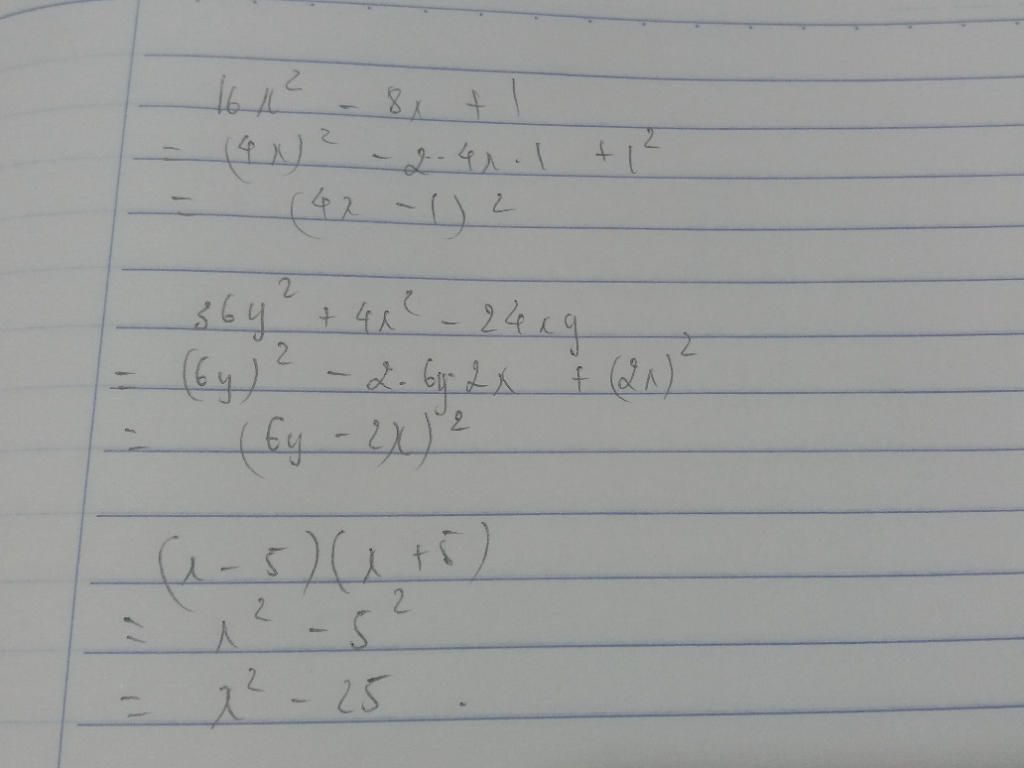 16x² - 8x + 1
= (4x)² - 2·4x·1 + 1²
= (4x - 1)²
36y² + 4x² - 24xy
= (6y)² - 2·6y·2x + (2x)²
= (6y - 2x)²
(x - 5)(x + 5)
= x² - 5²
= x² - 25 .